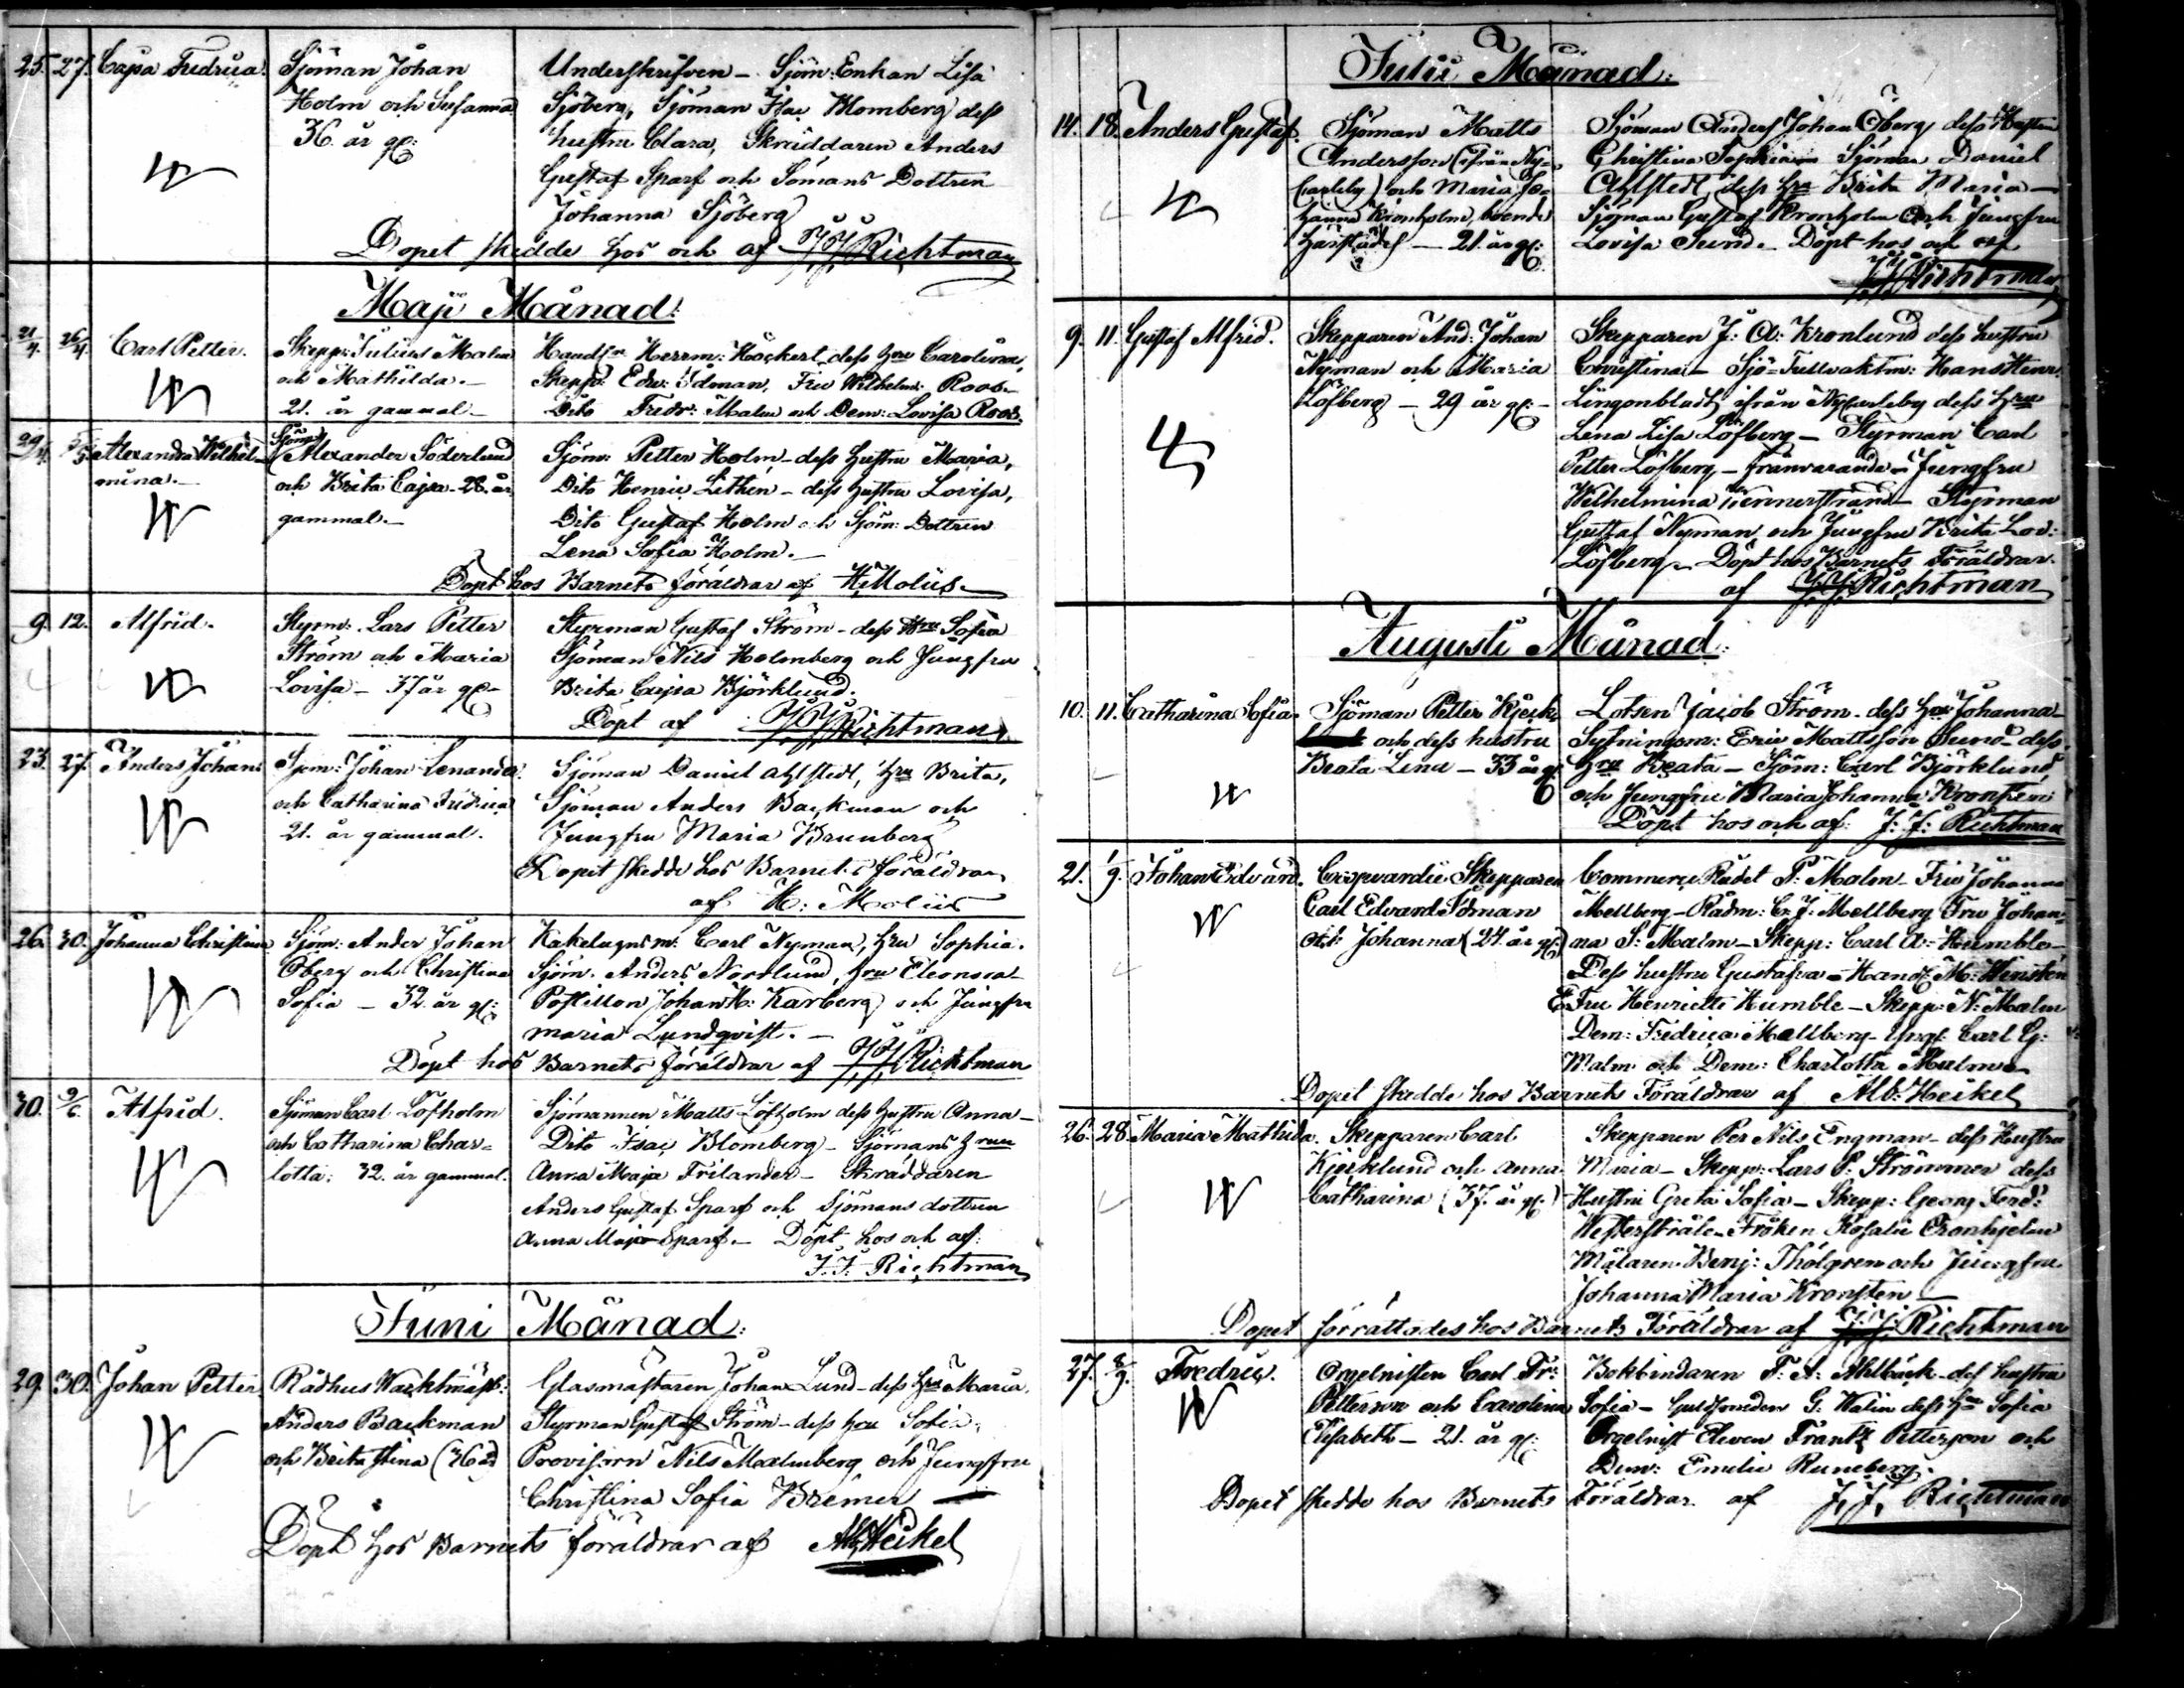 25. 27. Cajsa Fredrica. Sjöman Johan Underskrifven - Sjöm: Enkan Lisa
Holm och Susanna Sjöberg, Sjöman Isac Blomberg dess
36. år gl: hustru Clara, Skräddaren Anders
Gustaf Sparf och Sömans Dottren
Johanna Sjöberg
Dopet skedde hos och af J. J. Richtman
Maji Månad:
21/4. 26/4. Carl Petter. Skepp: Julius Malm Handl Herrm: Höckert, dess hru Carolina,
och Mathilda. Skepp: Edv: Ödman, Fru Wilhelm: Roos
21. år gammal Dito Fredr: Malm och Dem: Lovisa Roos.
29/4 5/5 Alexandra Wilhel- Sjöm: Alexander Söderlund Sjöm: Petter Holm - dess hustru Maria,
mina. och Brita Cajsa - 28. år Dito Henric Lithén - dess hustru Lovisa,
gammal. Dito Gustaf Holm och Sjöm: Dottren
Lena Sofia Holm.
Döpt hos Barnets föräldrar af H. Moliis
9. 12. Alfrid. Styrm: Lars Petter Styrman Gustaf Ström - dess Hru Sofia
Ström och Maria Sjöman Nils Holmberg och Jungfru
Lovisa - 37 år gl Brita Cajsa Björklund.
Döpt af J. J. Richtman
23. 27. Anders Johan Sjöm: Johan Lenander Sjöman Daniel Ahlstedt, hru Brita,
och Catharina Fridrica Sjöman Anders Backman och
21. år gammal. Jungfru Maria Brunberg
Dopet skedde hos Barnets föräldrar
af H: Moliis
26. 30. Johanna Christina Sjöm: Ander Johan Kakelugnsm: Carl Nyman, hru Sophia.
Öberg och Christina Sjöm. Anders Nordlund, hru Eleonora
Sofia - 32. år gl: Postillon Johan H: Karberg och Jungfru
Maria Lundqvist.
Döpt hos Barnets föräldrar af J. J. Richtman
30. 9/6. Alfrid. Sjöman Carl Löfholm Sjömannen Matts Löfholm dess hustru Anna
och Catharina Char- Dito Isac Blomberg - Sjömans hrun
lotta. 32. år gammal. Anna Maja Frilander - Skräddaren
Anders Gustaf Sparf och Sjömans dottren
Anna Maja Sparf. - Döpt hos och af:
J. J. Richtman
Juni Månad:
29. 30. Johan Petter Rådhus Wacktmäst: Glasmästaren Johan Lund - dess hru Maria.
Anders Backman Styrman Gustaf Ström - dess hru Sofia,
och Brita Stina (36 år) Provisorn Nils Malmberg och Jungfru
Christina Sofia Bremer
Döpt hos Barnets föräldrar af Alb. Heikel
Julii Månad:
14. 18. Anders Gustaf. Sjöman Matts Sjöman Anders Johan Öberg dess Hustru
Andersson (ifrån Ny- Christina Sophia Sjöman Daniel
Carleby) och Maria Jo- Ahlstedt, dess hru Brita Maria
hanna Kronholm, boende Sjöman Gustaf Kronholm och Jungfru
härstädes - 21. år gl: Lovisa Sund. Döpt hos och af
J. J. Richtman
9. 11. Gustaf Alfrid. Skepparen And: Johan Skepparen J: A: Kronlund dess hustru
Nyman och Maria Christina - Sjö-Tullvaktm: Hans Henr:
Löfberg - 29 år gl: Lingonbladt, ifrån NyCarleby dess hru
Lena Lisa Löfberg - Styrman Carl
Petter Löfberg - frånvarande - Jungfru
Wilhelmina Wennerstrand - Styrman
Gustaf Nyman och Jungfru Brita Lov:
Löfberg - Döpt hos Barnets Föräldrar
af J. J. Richtman
Augusti Månad:
10. 11. Catharina Sofia. Sjöman Petter Lotsen Jacob Ström - dess hru Johanna
och dess hustru Sytningsm: Eric Mattsson Sund - dess
Beata Lena - 33 år gl: hru Beata - Sjöm: Carl Björklund
och Jungfru Maria Johanna Kronsten
Döpt hos och af: J: J: Richtman
21. 1/9. Johan Edvard. Coopvardie Skepparen Commerce Rådet P: Malm - Fru Johanna
Carl Edvard Ödman Mellberg - Rådm: C: J: Mellberg Fru Johan-
och Johanna (24. år gl:) na S: Malm - Skepp: Carl A: Humble
Dess hustru Gustafva - Handl: M:
Fru Henriette Humble - Skepp: N: Malm
Dem: Fredrica Mellberg - Yngl: Carl G:
Malm och Dem: Charlotta Malm
Dopet skedde hos Barnets Föräldrar af Alb. Heikel
26. 28. Maria Mathilda. Skepparen Carl Skepparen Per Nils Engman - dess Hustru
Björklund och Anna Maria - Skepp: Lars P: Strömmer dess
Catharina (37. år gl:) Hustru Greta Sofia - Skepp: Georg Ferd:
Westerstråle - Fröken Rosalie Cronhjelm
Målaren Benj: Tholgren och Jungfru
Johanna Maria Kronsten
Dopet förrättades hos Barnets Föräldrar af J. J. Richtman
27. 8/9. Fredric. Orgelnisten Carl Fr: Bokbindaren F: A: Ahlbäck - dess hustru
Petterson och Carolina Sofia - Guldsmeden G: Walin dess hru Sofia
Elisabeth - 21. år gl: Orgelnist Eleven Frantz Petterson och
Dem: Emelie Runeberg.
Dopet skedde hos Barnets Föräldrar af J. J. Richtman